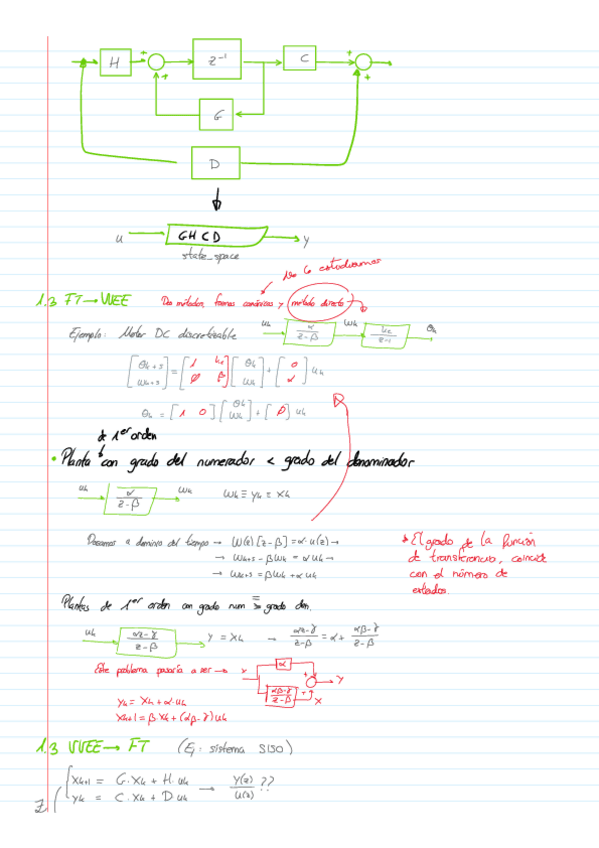 H
+
+
z⁻¹
C
+
+
G
D
u
GHCD
y
state_space
No lo estudiamos
1.3 FT → VVEE Dos métodos, formas canónicas y método directo
Ejemplo: Motor DC discretizable
uk
α
z-β
wk
z-1
θk
[θk+1
wk+1] = [1
0 β] [θk
wk] + [0
α] uk
θk = [1 0] [θk
wk] + [0] uk
de 1er orden
• Planta con grado del numerador < grado del denominador
uk
α
z-β
wk
wk ≡ yk ≡ xk
Pasamos a dominio del tiempo → W(z)[z-β] = α·u(z) →
→ wk+1 - βwk = αuk →
→ wk+1 = βwk + αuk
* El grado de la función
de transferencia, coincide
con el número de
estados.
Plantas de 1er orden con grado num = grado den.
uk
αz-γ
z-β
y = xk → αz-γ / z-β = α + αβ-γ / z-β
Este problema pasaría a ser →
α
αβ-γ
z-β
+
+
y
x
yk = xk + α·uk
xk+1 = βxk + (αβ-γ)uk
1.3 VVEE → FT (Ej: sistema SISO)
Z { xk+1 = G·xk + H·uk
yk = C·xk + D uk → Y(z)/U(z) ??